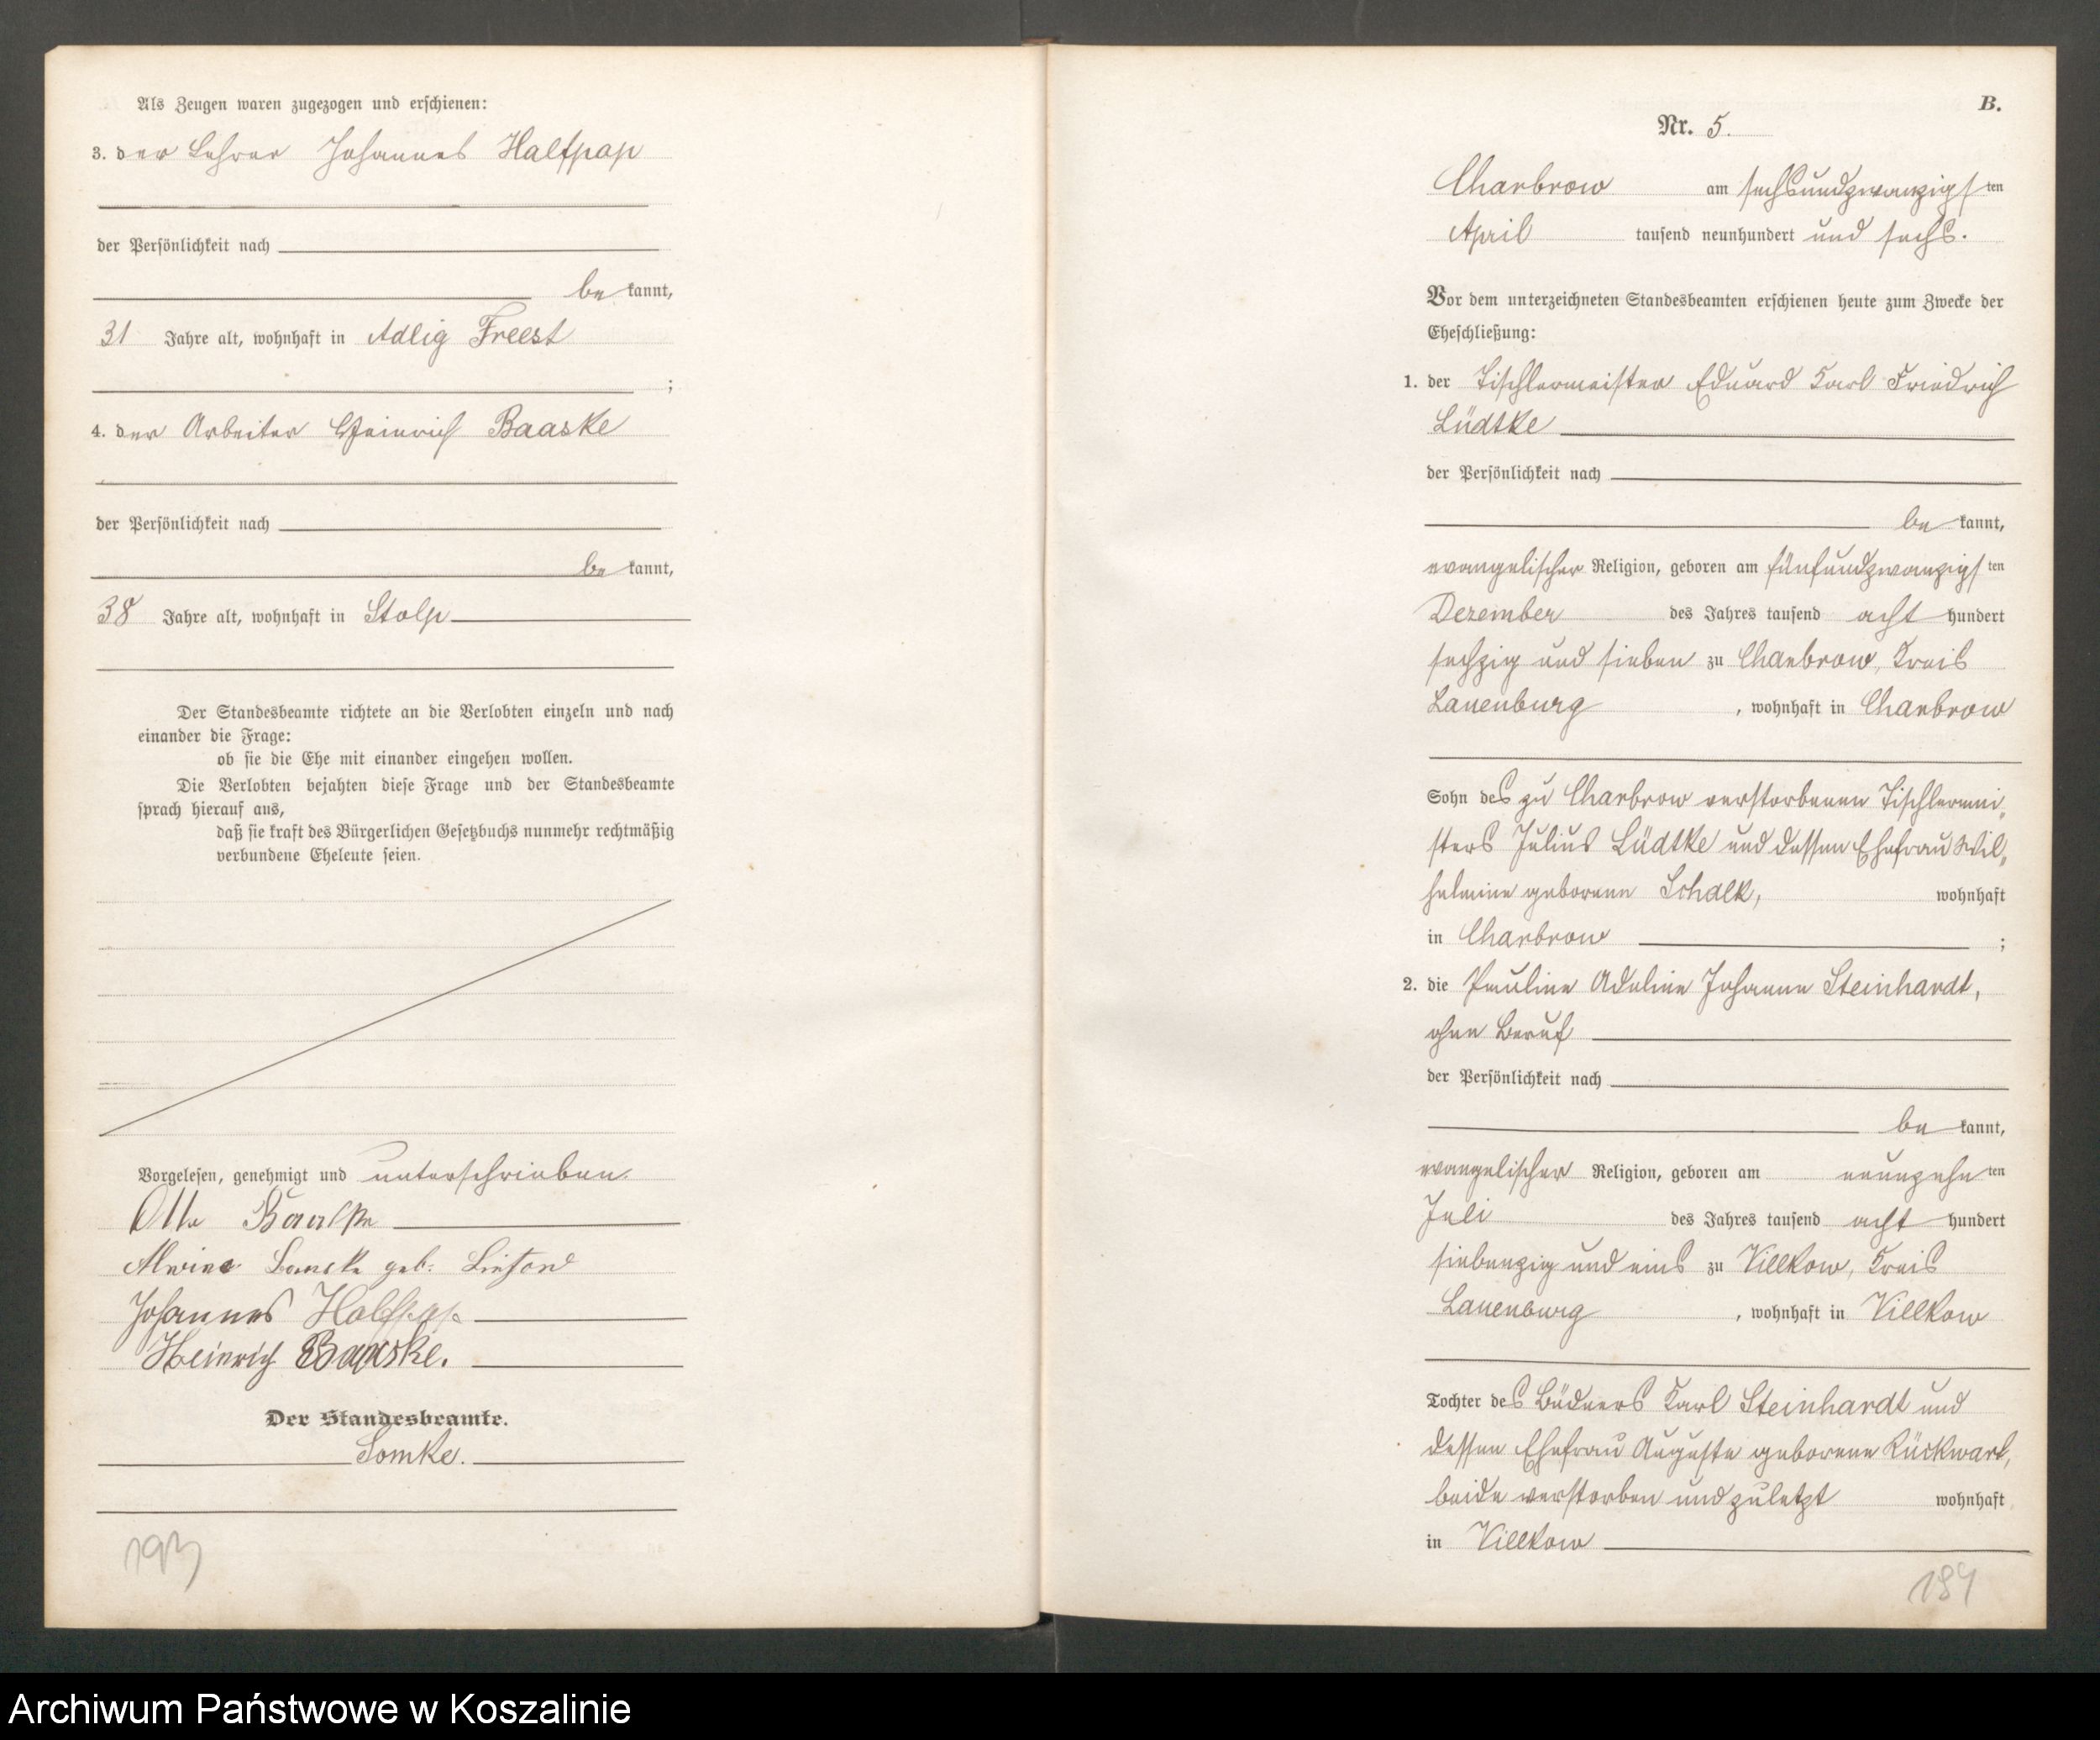 Als Zeugen waren zugezogen und erschienen:
3. der Lehrer Johannes Halfpap
der Persönlichkeit nach
be kannt,
31 Jahre alt, wohnhaft in Adlig Freest
;
4. der Arbeiter Heinrich Baaske
der Persönlichkeit nach
be kannt,
38 Jahre alt, wohnhaft in Stolp
Der Standesbeamte richtete an die Verlobten einzeln und nach
einander die Frage:
ob sie die Ehe mit einander eingehen wollen.
Die Verlobten bejahten diese Frage und der Standesbeamte
sprach hierauf aus,
daß sie kraft des Bürgerlichen Gesetzbuchs nunmehr rechtmäßig
verbundene Eheleute seien.
Vorgelesen, genehmigt und unterschrieben.
Otto Baaske
Alwine Baaske geb.
Johannes Halfpap
Heinrich Baaske.
Der Standesbeamte.
Somke.
193
B.
Nr. 5.
Charbrow am sechsundzwanzigsten
April tausend neunhundert und sechs.
Vor dem unterzeichneten Standesbeamten erschienen heute zum Zwecke der
Eheschließung:
1. der Tischlermeister Eduard Karl Friedrich
Lüdtke
der Persönlichkeit nach
be kannt,
evangelischer Religion, geboren am fünfundzwanzigsten
Dezember des Jahres tausend acht hundert
sechzig und sieben zu Charbrow, Kreis
Lauenburg, wohnhaft in Charbrow
Sohn des zu Charbrow verstorbenen Tischlermei„
sters Julius Lüdtke und dessen Ehefrau Wil„
helmine geborene Schalk, wohnhaft
in Charbrow ;
2. die Pauline Adeline Johanne Steinhardt,
ohne Beruf
der Persönlichkeit nach
be kannt,
evangelischer Religion, geboren am neunzehnten
Juli des Jahres tausend acht hundert
siebenzig und eins zu Villkow, Kreis
Lauenburg, wohnhaft in Villkow
Tochter des Büdners Karl Steinhardt und
dessen Ehefrau Auguste geborene Rückwart,
beide verstorben und zuletzt wohnhaft
in Villkow
194
Archiwum Państwowe w Koszalinie